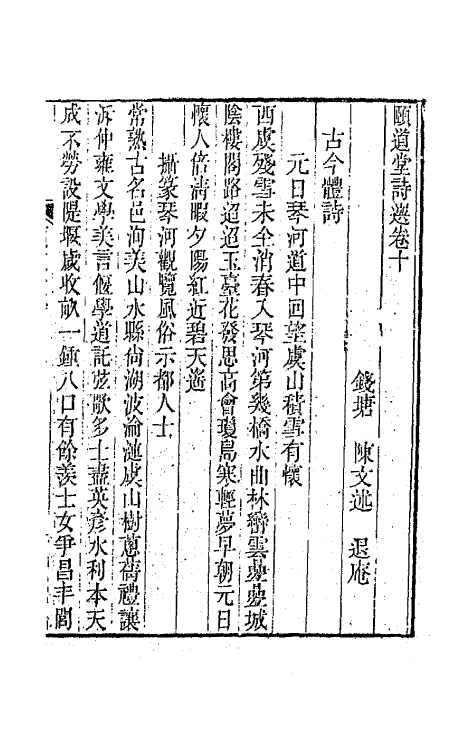 頤道堂詩選卷十
錢塘 陳文述 退庵
古今體詩
元日琴河道中回望虞山積雪有懷
西虞殘雪未全消春入琴河第幾橋水曲林巒雲疊疊城
陰樓閣路迢迢玉臺花發思高會瓊島寒輕夢早朝元日
懷人倍清暇夕陽紅近碧天遙
攝篆琴河觀覽風俗示都人士
常熟古名邑洵美山水縣尙湖波淪漣虞山樹蔥蒨禮讓
泝仲雍文學美言偃學道託弦歌多士盡英彥水利本天
成不勞設隄堰歲收畝一鍾八口有餘羨士女爭昌丰閭